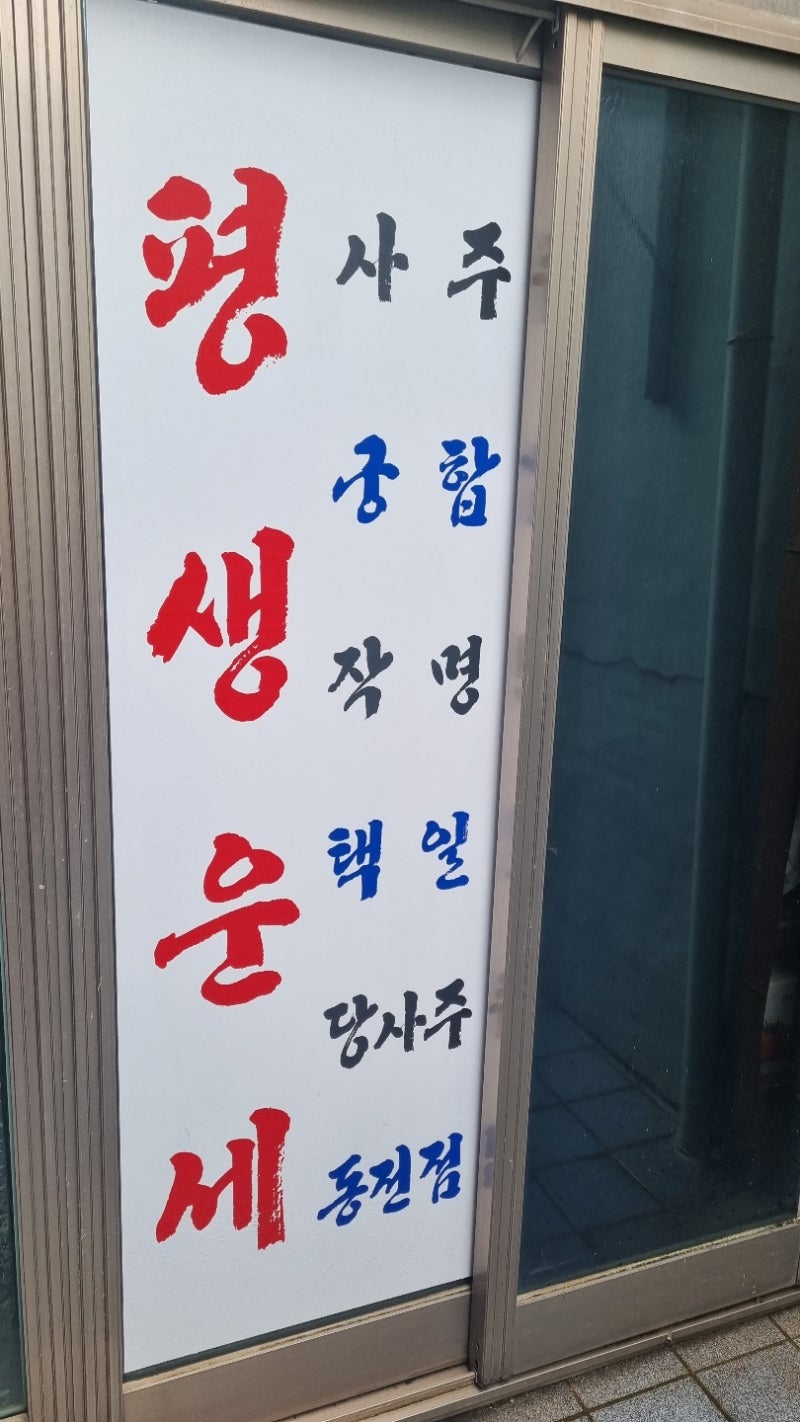 평생운세
사주
궁합
작명
택일
당사주
동전점